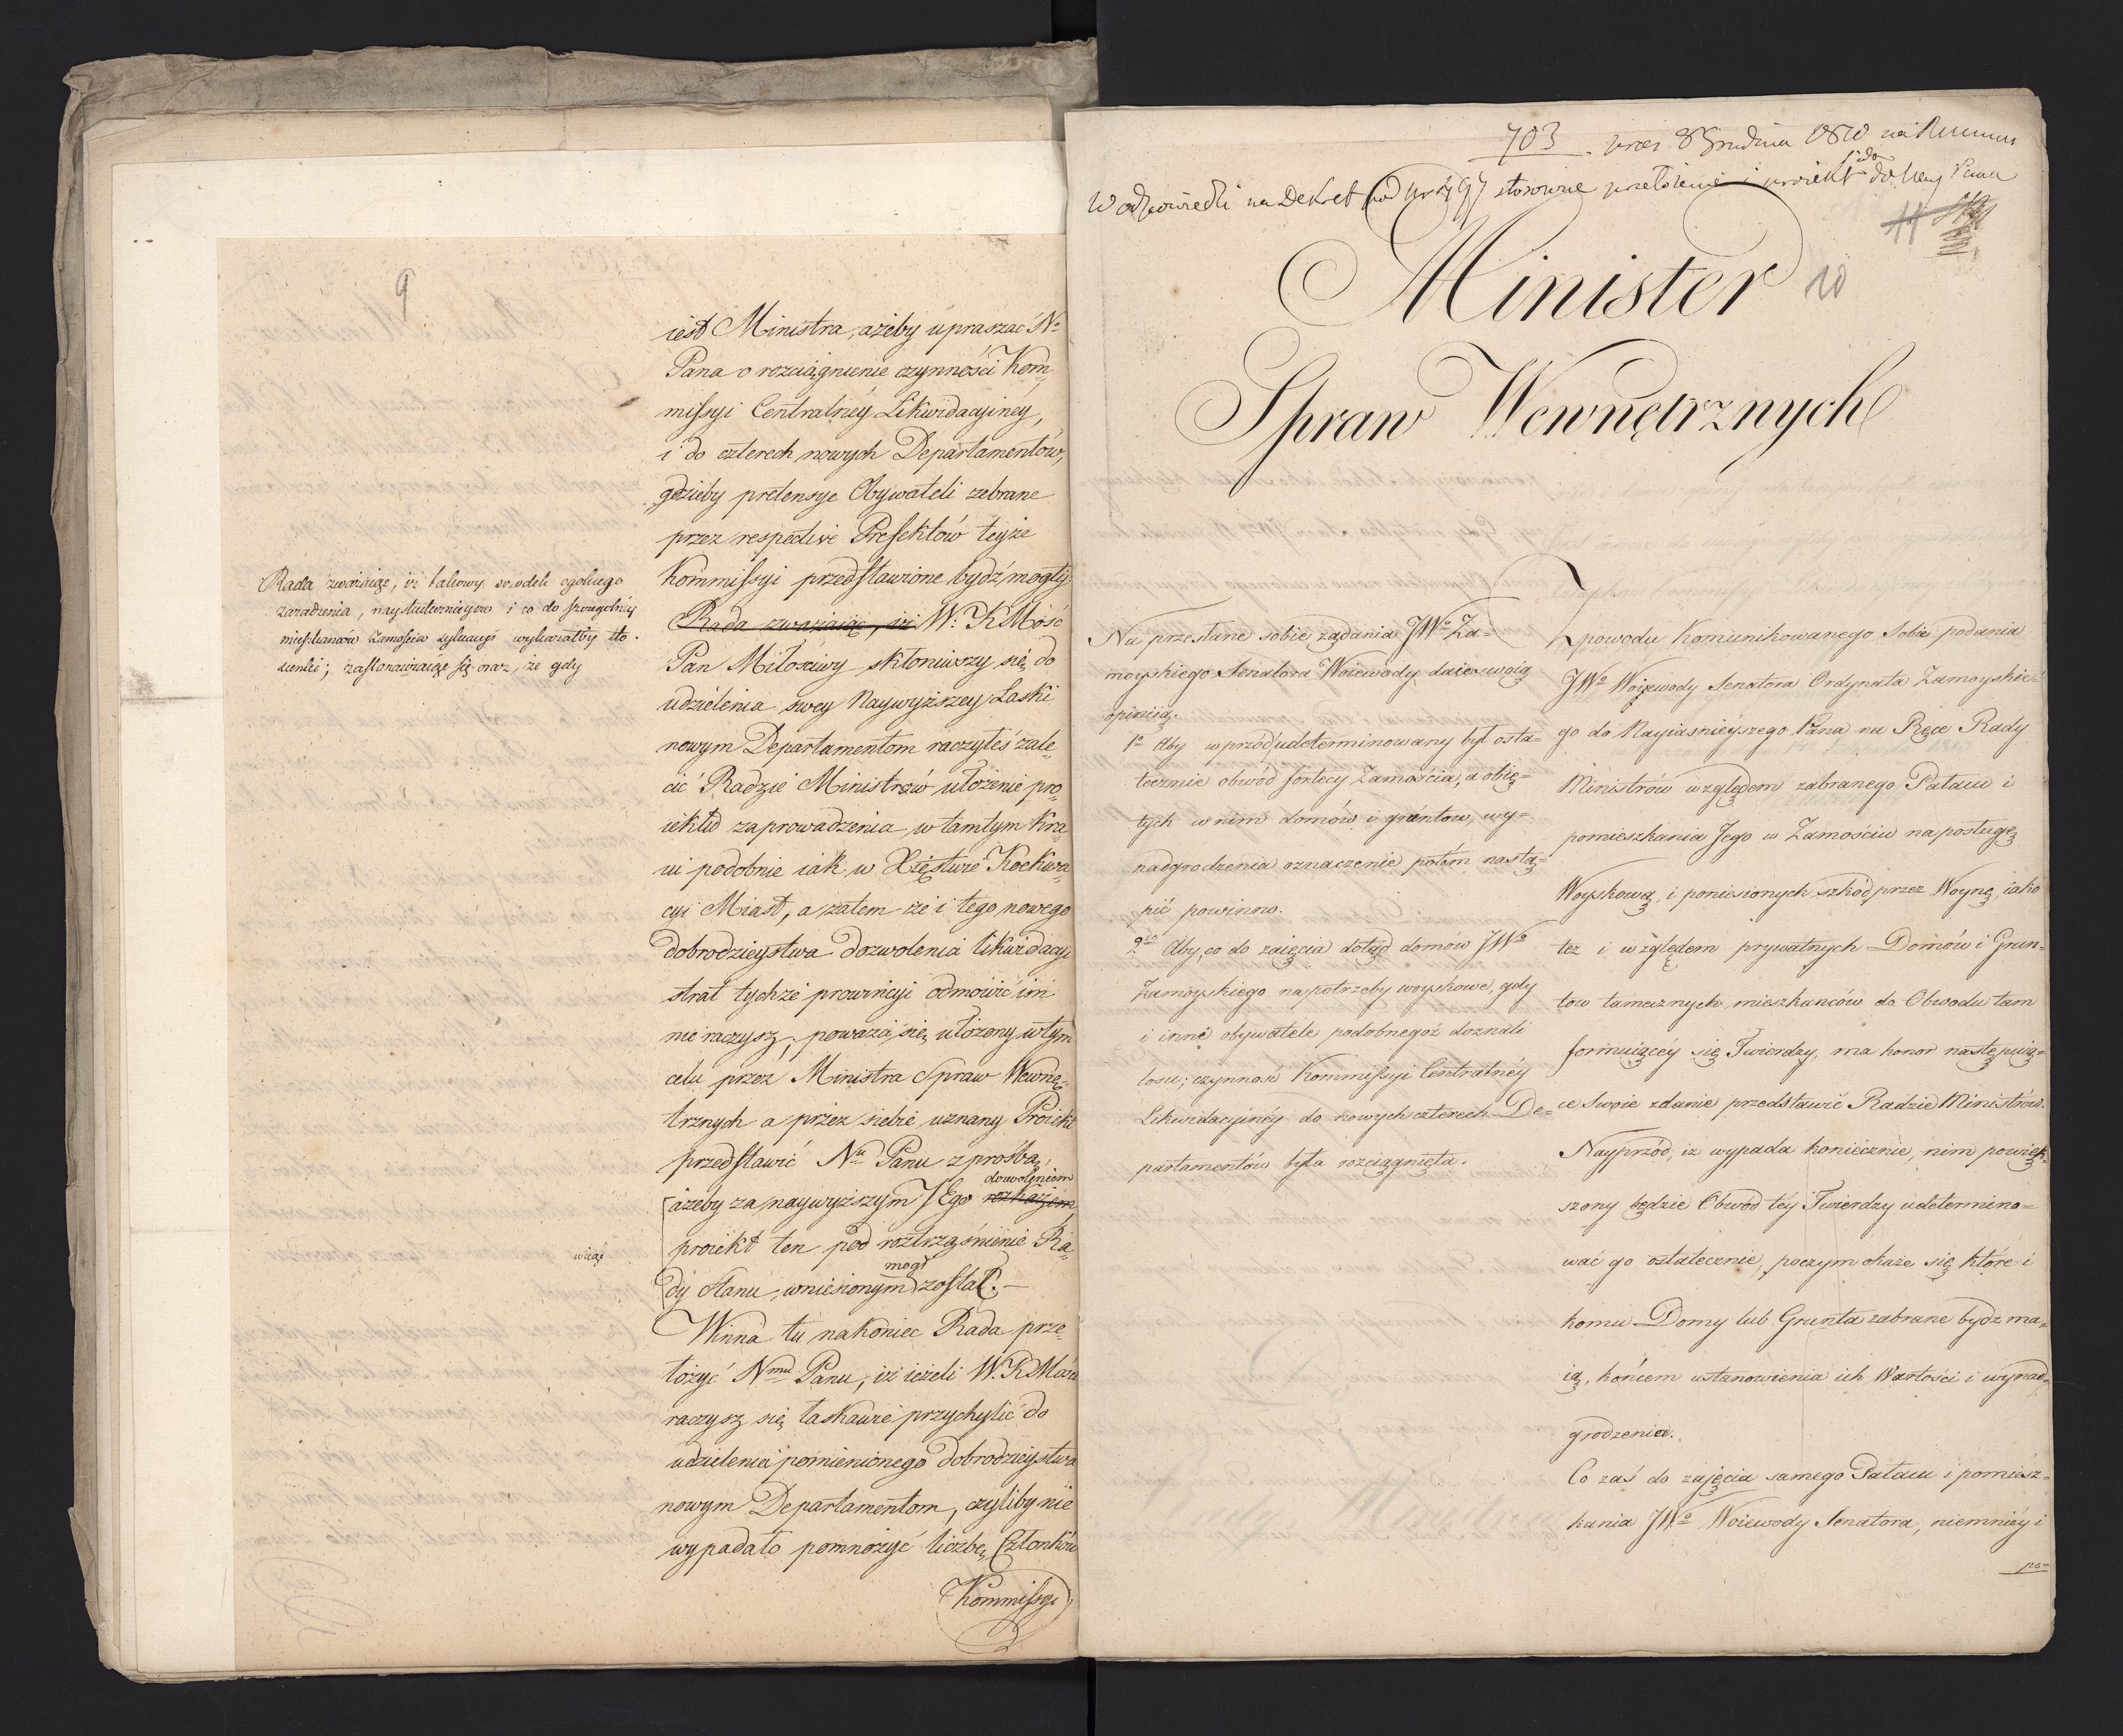 9
iest Ministra, ażeby upraszać Nº
Pana o rozciągnienie czynności Kom=
missyi Centralnéy Likwidacyinéy,
i do czterech nowych Departamentów,
gdzieby pretensye Obywateli zebrane
przez respective Prefektów teyże
Kommissyi przedstawione bydź mogły
Rada zważaiąc, iż W. K Mość
Pan Miłościwy skłoniwszy się do
udzielenia swey Naywyższey Łaski
nowym Departamentom raczyłeś zale=
cić Radzie Ministrów ułożenie pro=
iektu zaprowadzenia w tamtym Kra=
iu podobnie iak w Xięstwie Kockwa=
cyi Miast, a zatem że i tego nowego
dobrodzieystwa dozwolenia likwidacyi
strat tychże prowincyi odmówić im
nie raczysz, poważa się ułożony w tym
celu przez Ministra Spraw Wewnę=
trznych a przez siebie uznany Proiekt
przedstawić Nu Panu z prośbą,
dozwoleniem
ażeby za naywyższym JEgo rozkazem
proiekt ten pod roztrząśnienie Ra=
mógł
dy Stanu, wniesionym został.—
Winna tu nakoniec Rada prze=
łożyć Nmu Panu, iż ieżeli W. K Mość
raczysz się łaskawie przychylić do
udzielenia pomienionego dobrodzieystwa
nowym Departamentom, czyliby nie
wypadało pomnożyć liczbę Członków
Kommissyi
Rada zważaiąc, iż takowy srodek ogolnego
zaradzenia, nayskuteczniejsze i co do szczególnéy
mieszkancow Zamościa sytuacyi
zastanawiaiąc się oraz, że gdy
703 8 Grudnia 1810
W odpowiedzi na Dekret pod stosowne przełożenie i proiekt do Nay Pana
Minister 10
Spraw Wewnętrznych
Na przesłane sobie żądania JWº Za=
moyskiego Senatora Woiewody daie swoią
opiniią.
1º Aby wprzód udeterminowany był osta=
tecznie obwód fortecy Zamościa, a obię=
tych w nim domów i gruntów, wy=
nadgrodzenia oznaczenie potém nastą=
pić powinno.
2do Aby, co do zaięcia dotąd domów JWº
Zamoyskiego na potrzeby woyskowe, gdy
i inne obywatele podobnegoż doznali
losu; czynność Kommissyi Centralnéy
Likwidacyinéy do nowych czterech De=
partamentów była rozciągnięta.
Z powodu Komunikowanego Sobie podania
JWº Woiewody Senatora Ordynata Zamoyskie=
go do Nayiasnieyszego Pana na Ręce Rady
Ministrów względem zabranego Pałacu i
pomieszkania Jego w Zamościu na posługę
Woyskową, i poniesionych szkód przez Woynę, iako
też i względem prywatnych Domów i Grun=
tow tamecznych mieszkanców do Obwodu tam
formuiącéy się Twierdzy, ma honor następuią=
ce Swoie zdanie przedstawić Radzie Ministrów.
Nayprzód, iż wypada koniecznie, nim powięk=
szony będzie Obwód téy Twierdzy udetermino=
wać go ostatecznie, poczym okaże się które i
komu Domy lub Grunta zabrane bydź ma=
ią, końcem ustanowienia ich Wartości i wynad=
grodzenia.
Co zaś do zajęcia samego Pałacu i pomiesz=
kania JWº Woiewody Senatora, niemniéy i
po=